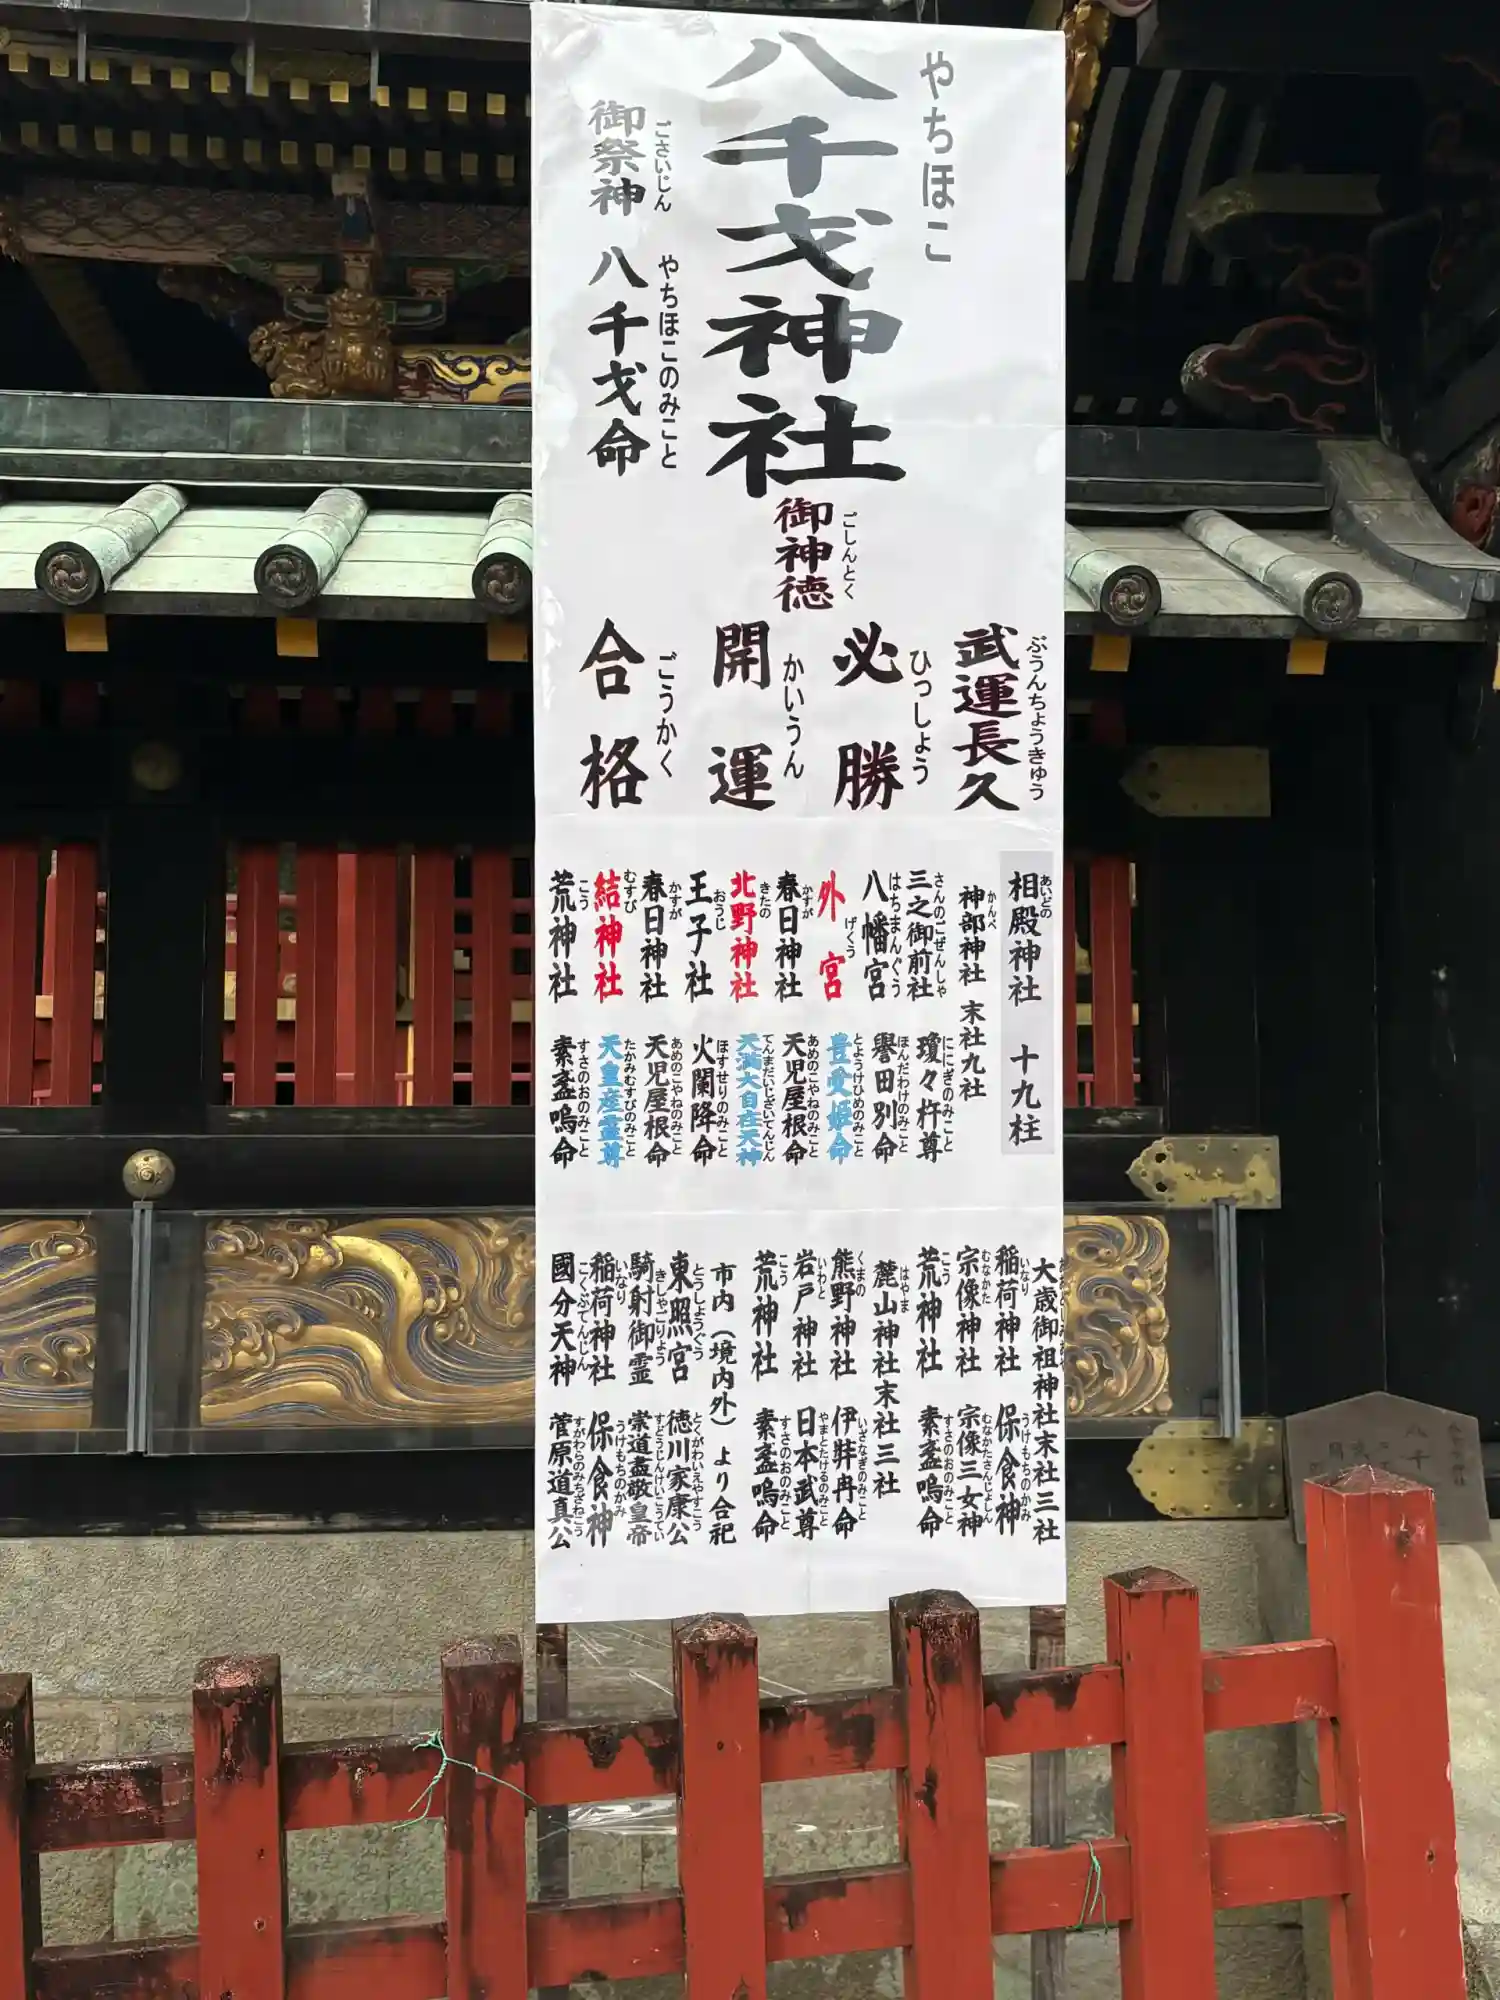 やちほこ
八千戈神社
ごさいじん
御祭神
やちほこのみこと
八千戈命
ごしんとく
御神徳
ぶうんちょうきゅう
武運長久
ひっしょう
必勝
かいうん
開運
ごうかく
合格
あいどの
相殿神社 十九柱
かんべ
神部神社 末社九社
さんのごぜんしゃ
三之御前社
ににぎのみこと
瓊々杵尊
はちまんぐう
八幡宮
ほんだわけのみこと
譽田別命
げくう
外宮
とようけひめのみこと
豊受姫命
かすが
春日神社
あめのこやねのみこと
天児屋根命
きたの
北野神社
てんまだいじざいてんじん
天満大自在天神
おうじ
王子社
ほすせりのみこと
火闌降命
かすが
春日神社
あめのこやねのみこと
天児屋根命
むすび
結神社
たかみむすびのみこと
天皇産霊尊
こう
荒神社
すさのおのみこと
素盞嗚命
大歳御祖神社末社三社
いなり
稲荷神社
うけもちのかみ
保食神
むなかた
宗像神社
むなかたさんじょしん
宗像三女神
こう
荒神社
すさのおのみこと
素盞嗚命
はやま
麓山神社末社三社
くまの
熊野神社
いざなぎのみこと
伊弉冉命
いわと
岩戸神社
やまとたけるのみこと
日本武尊
こう
荒神社
すさのおのみこと
素盞嗚命
市内(境内外)より合祀
とうしょうぐう
東照宮
とくがわいえやすこう
徳川家康公
きしゃごりょう
騎射御霊
すどうじんけいこうてい
崇道盡敬皇帝
いなり
稲荷神社
うけもちのかみ
保食神
こくぶてんじん
國分天神
すがわらのみちざねこう
菅原道真公